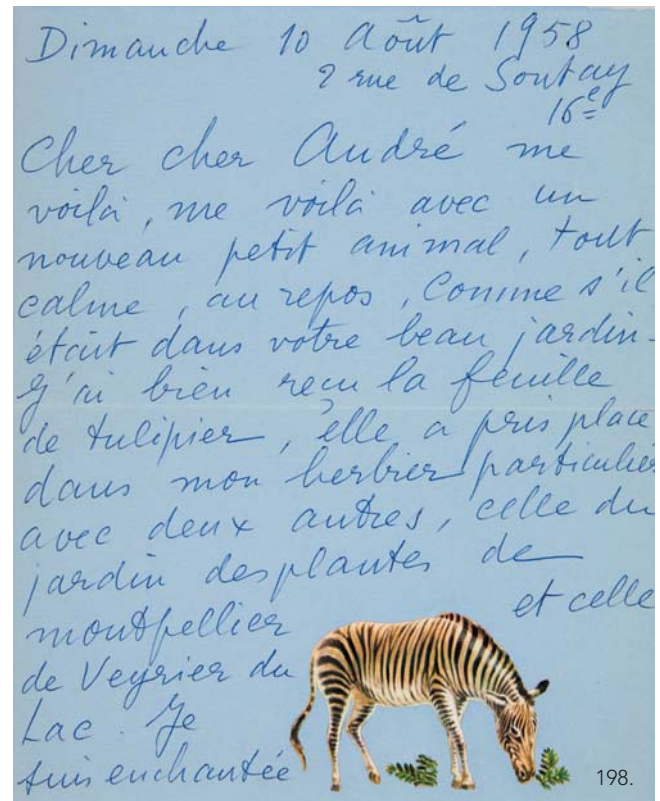 Dimanche 10 Août 1958
2 rue de Sontay
16e
Cher cher André me
voilà, me voilà avec un
nouveau petit animal, tout
calme, au repos, Comme s'il
était dans votre beau jardin.
J'ai bien reçu la feuille
de tulipier, elle a pris place
dans mon herbier particulier
avec deux autres, celle du
jardin des plantes de
montpellier et celle
de Veyrier du
Lac. Je
suis enchantée
198.